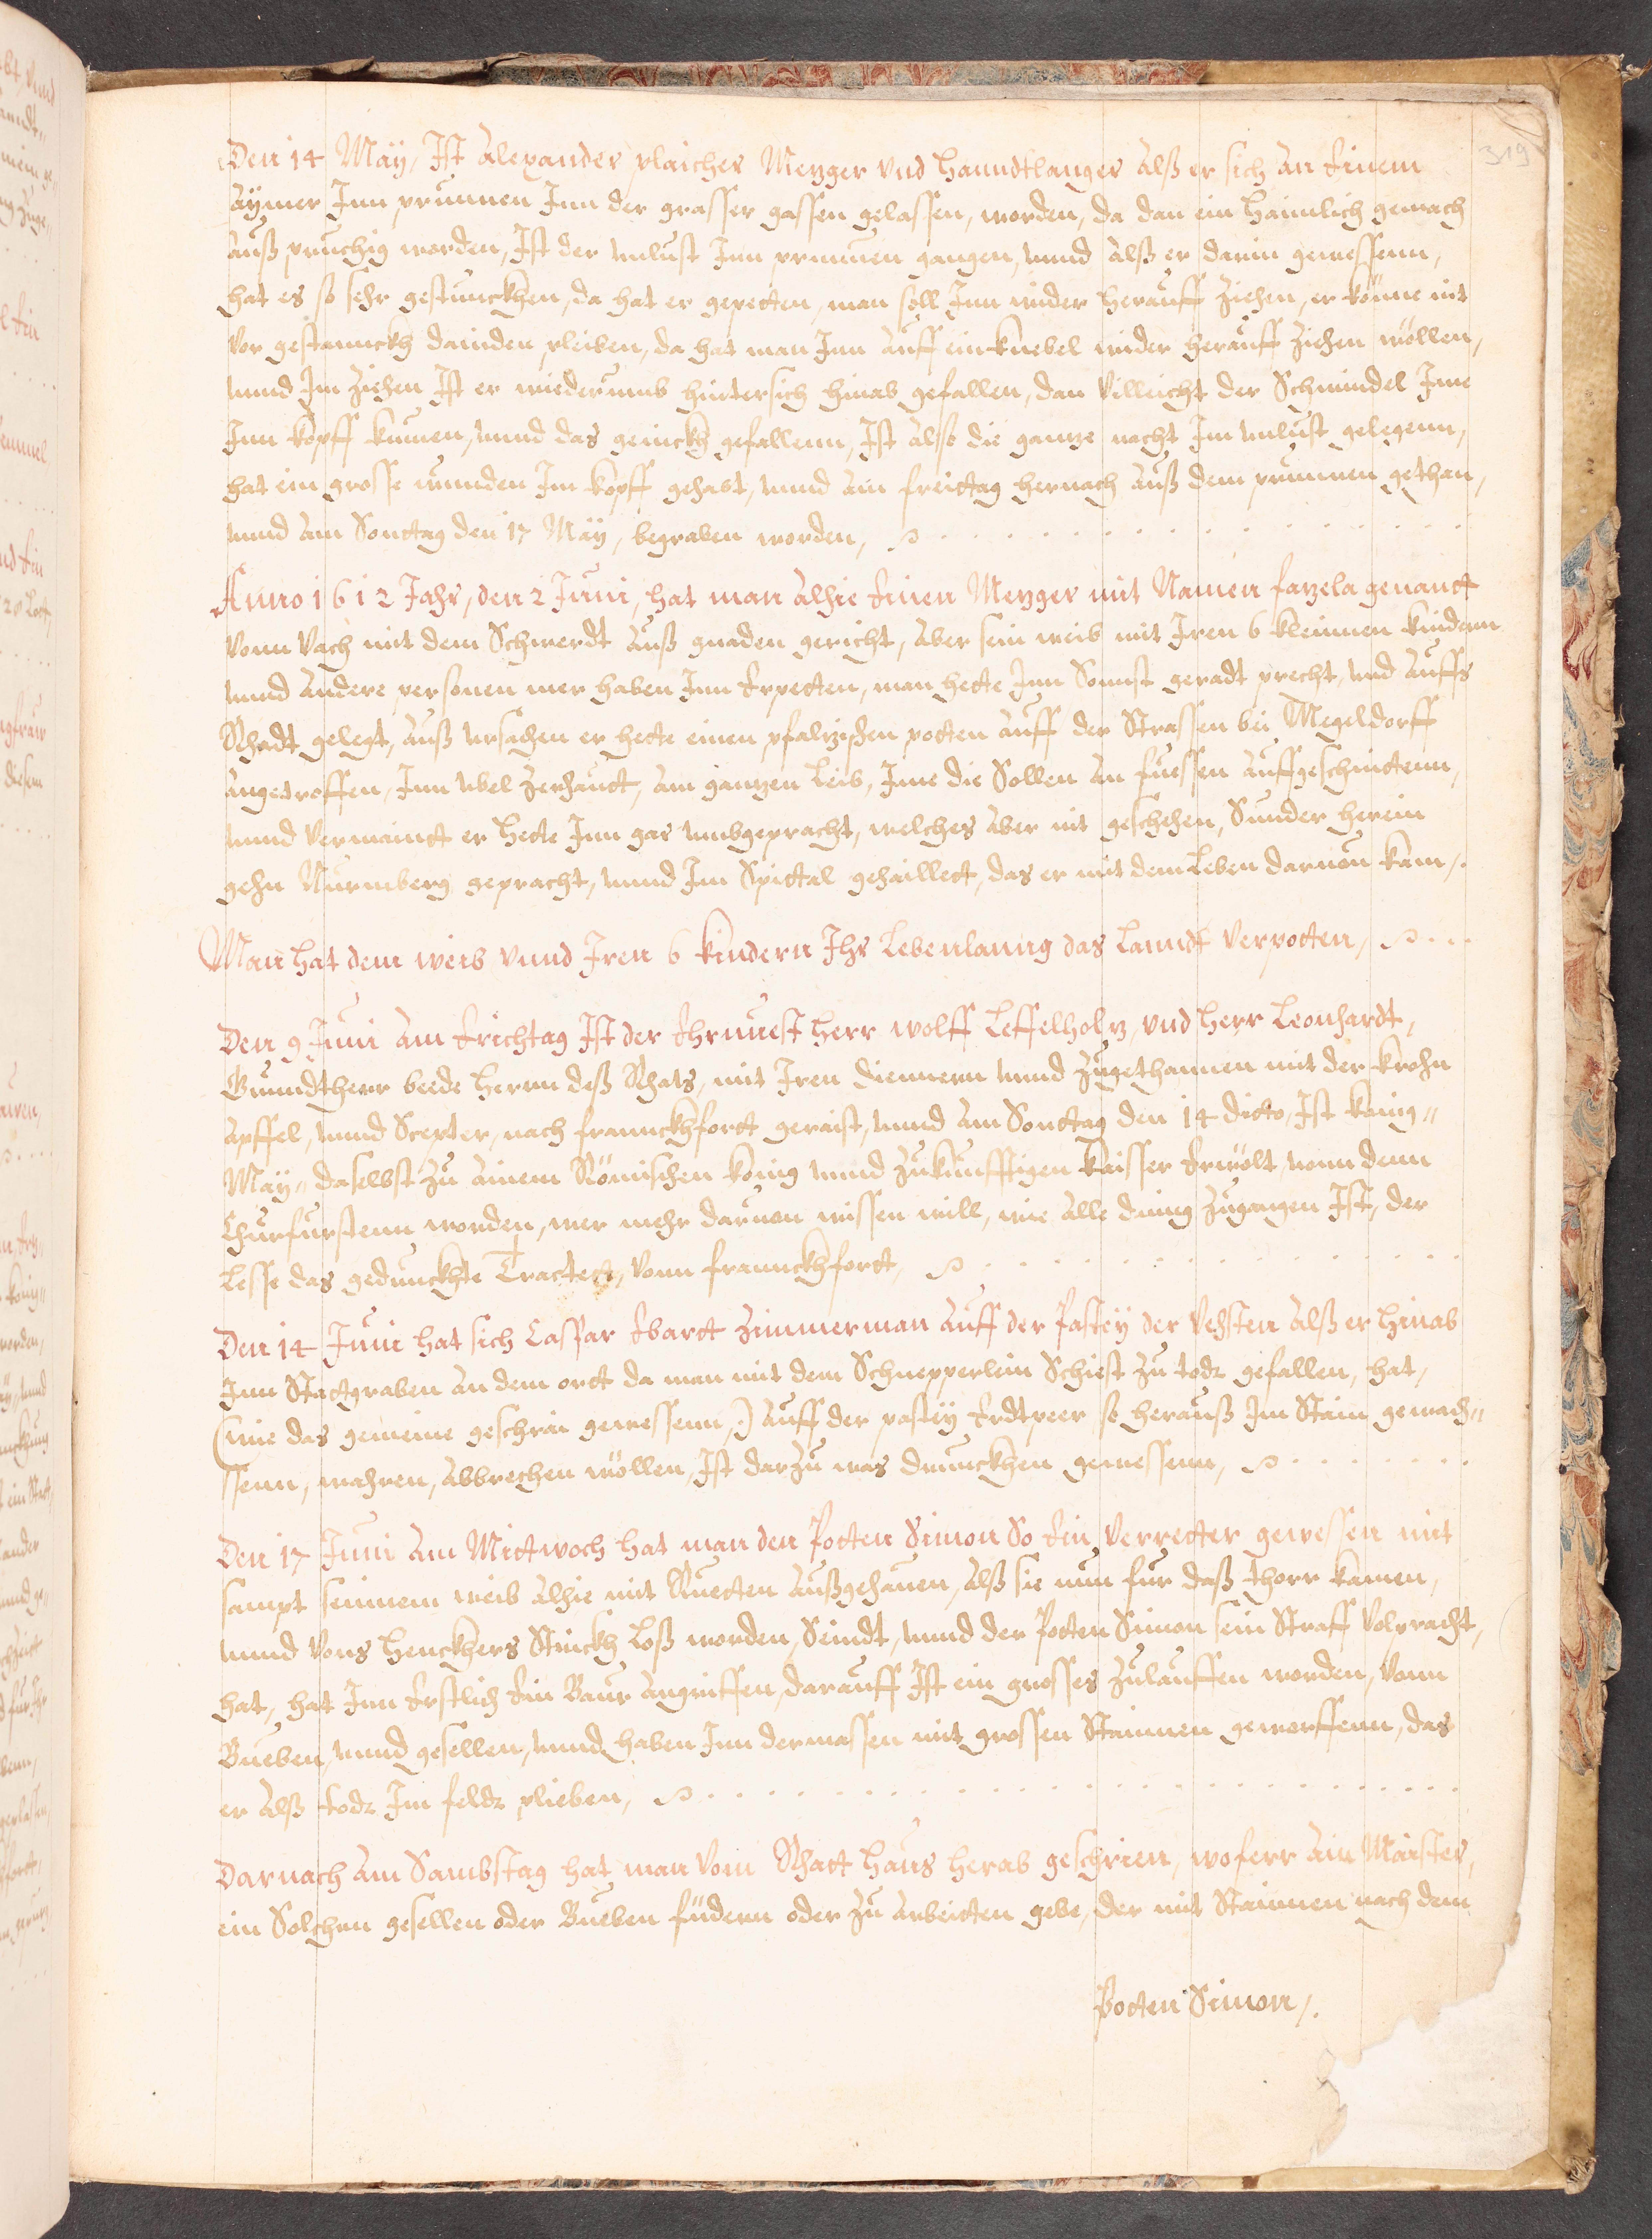 319
Den 14 Maÿ, Ist Alexander plaicher Mezger vnd Hanndtlanger Alß er sich An Einem
Aÿmer Inn prunnen Inn der grasser gassen gelassen, worden, da dan ein haimlich gemach
Auß pruchig worden, Ist der vnlust Inn prunnen gangen, vnnd Alß er darin gewessenn,
hat es so sehr gestunckhen, da hat er gepetten, man soll Inn wider herauff ziehen, er könne nit
vor gestannckh dainden pleiben, da hat man Inn Auff ein knebel wider herauff ziehen wöllen,
vnnd Im ziehen Ist er wiederumb hintersich hinab gefallen, dan villeicht der Schwindel Ime
Inn kopff kumen, vnnd das genickh gefallenn, Ist Also die ganze nacht Im vnlust gelegenn,
hat ein grosse wunden Im kopff gehabt, vnnd Am freittag hernach Auß dem prunnen gethan,
vnnd Am Sonttag den 17 Maÿ, begraben worden,
Anno 1612 Jahr, den 2 Juni, hat man Alhie Einen Mezger mit Namen farzela genantt
vonn Vach mit dem Schwerdt Auß gnaden gericht, Aber sein weib mit Iren 6 kleinnen kindern
vnnd Andere personen mer haben Inn Erpetten, man hette Inn Sonnst geradt precht, vnd Auffs
Rhadt gelegt, Auß vrsachen er hette einen pfalzischen potten Auff der Strassen bei Megeldorff
Angetroffen, Inn vbel zerhautt, Am ganzen Leib, Ime die Sollen An fuessen Auffgeschnittenn,
vnnd vermaintt er hette Inn gar vmbgepracht, welches Aber nit geschehen, Sunder herein
gehn Nurmberg gepracht, vnnd Im Spittal gehaillett, das er mit dem Leben daruon kam,.
Man hat dem weib vnnd Iren 6 kindern Ihr Lebenlanng das Lanndt verpotten,
Den 9 Juni Am Erichtag Ist der Ehrnuest herr wolff Leffelholz, vnd herr Leonhardt,
Grundtherr beede herrn deß Rhats, mit Iren diennern vnnd zugethannen mit der krohn
Apffel, vnnd Scepter, nach franckhfortt geraist, vnnd Am Sonttag den 14 dicto, Ist könig"
Maÿ" daselbst zu Ainem Römischen könig vnnd zukunfftigen kaisser Erwölt, vonn denn
Churfurstenn worden, wer mehr daruon wissen will, wie Alle ding zugangen Ist, der
Lesse das gedrunckhte Tractett, vonn franckhfortt,
Den 14 Juni hat sich Caspar Ebartt zimmerman Auff der Pasteÿ der Vessten Alß er hinab
Inn Stattgraben An dem ortt da man mit dem Schnepperlein Schiest zu todt gefallen, hat,
(wie das gemeine geschrai gewessenn,) Auff der pasteÿ Erdtpeer so herauß Im Stain gewach"
ssenn, wahren, Abbrechen wöllen, Ist darzu was drunckhen gewessenn,
Den 17 Juni Am Mittwoch hat man den Potten Simon So Ein verretter gewessen mit
sampt seinnem weib Alhie mit Ruetten Außgehauen, Alß sie nun fur daß thorr kamen,
vnnd vons henckhers Strickh Loß worden, Seindt, vnnd der Potten Simon sein Straff volpracht,
hat, hat Inn Erstlich Ein Baur Angriffen, darauff Ist ein grosses zulauffen worden, vonn
Bueben, vnnd gesellen, vnnd haben Inn dermassen mit grossen Stainnen geworffenn, das
er Alß todt Im feldt plieben,
Darnach Am Sambstag hat man vom Rhatt haus herab geschrien, woferr Ain Maister,
ein Solchen gesellen oder Bueben fudern oder zu Arbeitten gebe, der mit Stainnen nach dem
Potten Simon,.